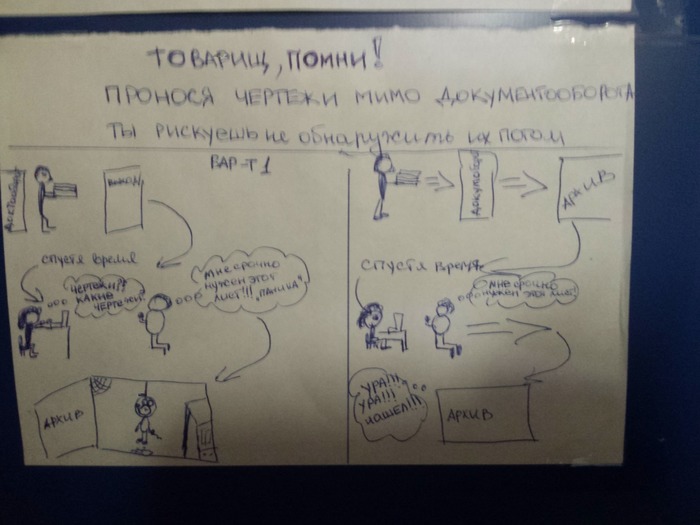 ТОВАРИЩ, ПОМНИ!
ПРОНОСЯ ЧЕРТЕЖИ МИМО ДОКУМЕНТООБОРОТА
ТЫ РИСКУЕШЬ НЕ ОБНАРУЖИТЬ ИХ ПОТОМ
ВАР-Т 1
ВЫХОД
АРХИВ
СПУСТЯ ВРЕМЯ
ЧЕРТЕЖИ?!
КАКИЕ
ЧЕРТЕЖИ?
МНЕ СРОЧНО
НУЖЕН ЭТОТ
ЛИСТ!!! "ПАНИКА"
АРХИВ
СПУСТЯ ВРЕМЯ
УРА!!!
УРА!!!
НАШЕЛ!!!
АРХИВ